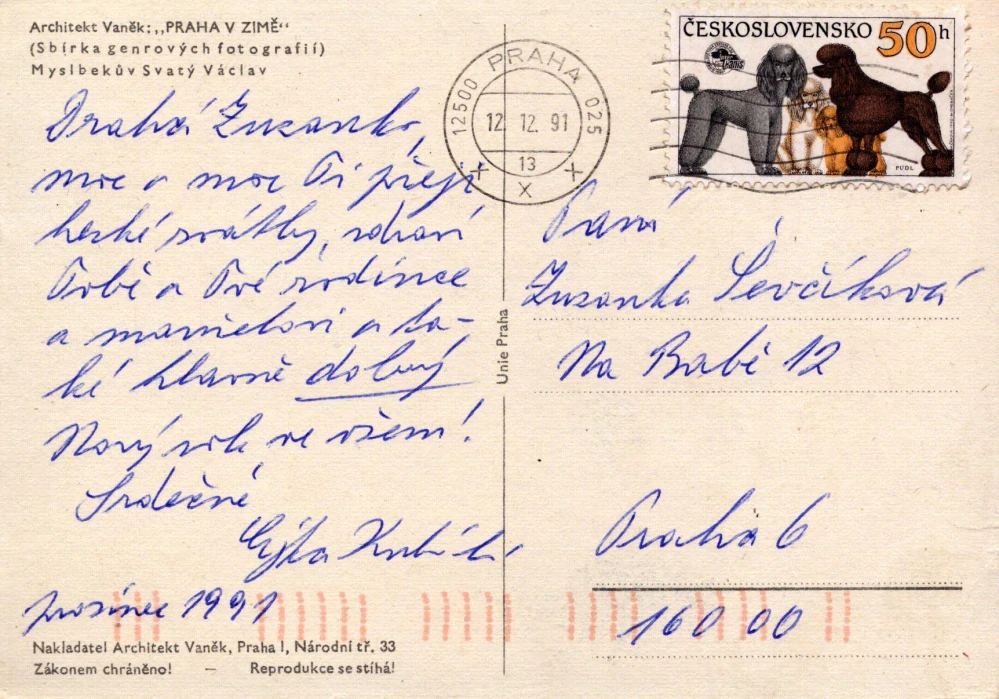 Architekt Vaněk: ,,PRAHA V ZIMĚ"
(Sbírka genrových fotografií)
Myslbekův Svatý Václav
Drahá Zuzanko,
moc a moc Ti přeji
hezké svátky, zdraví
Tobě a Tvé rodince
a manželovi a ta-
ké hlavně dobrý
Nový rok ve všem!
Srdečně
prosinec 1991
Nakladatel Architekt Vaněk, Praha I, Národní tř. 33
Zákonem chráněno! — Reprodukce se stíhá!
Unie Praha
12500 PRAHA 025
12. 12. 91
13
ČESKOSLOVENSKO 50h
PUDL
Paní
Zuzanka Ševčíková
Na Babě 12
Praha 6
160 00